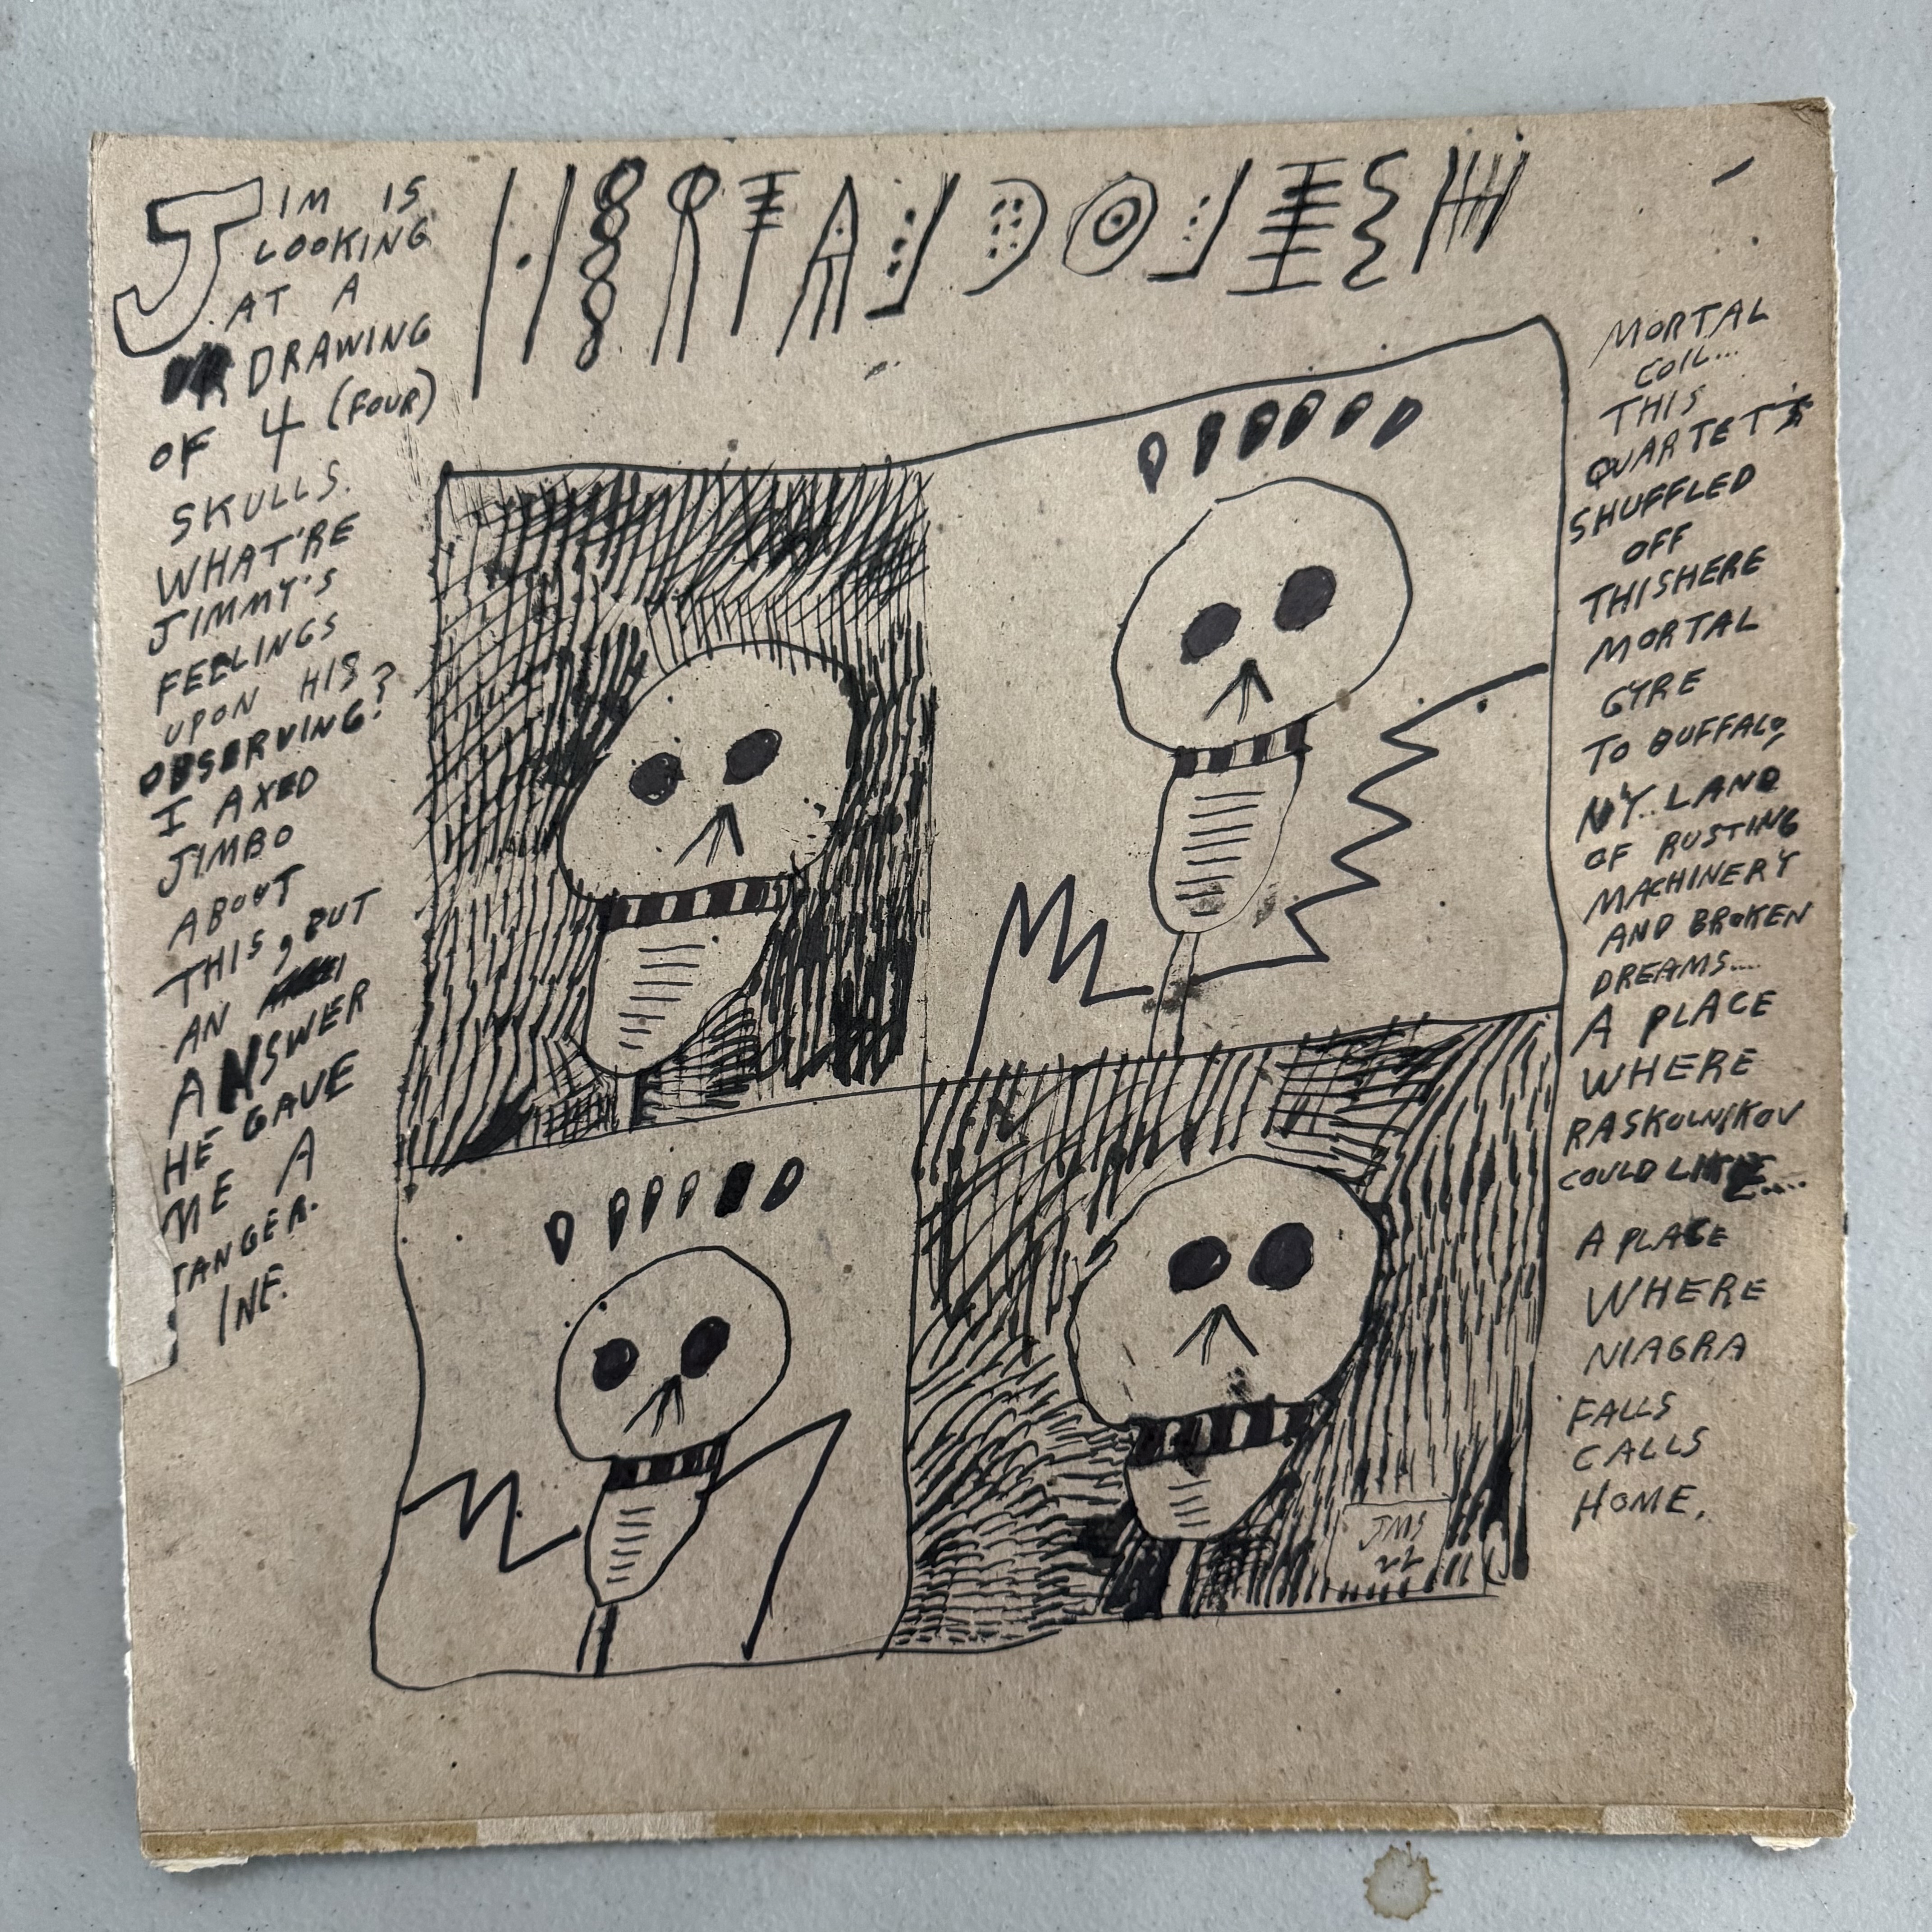 JIM IS
LOOKING
AT A
DRAWING
OF 4 (FOUR)
SKULLS.
WHAT'RE
JIMMY'S
FEELINGS
UPON HIS
OBSERVING?
I AXED
JIMBO
ABOUT
THIS, BUT
AN
ANSWER
HE GAVE
ME A
TANGER.
INE.
MORTAL
COIL...
THIS
QUARTET'S
SHUFFLED
OFF
THISHERE
MORTAL
GYRE
TO BUFFALO,
NY.. LAND
OF RUSTING
MACHINERY
AND BROKEN
DREAMS....
A PLACE
WHERE
RASKOLNIKOV
COULD
A PLACE
WHERE
NIAGRA
FALLS
CALLS
HOME.
JMS
22